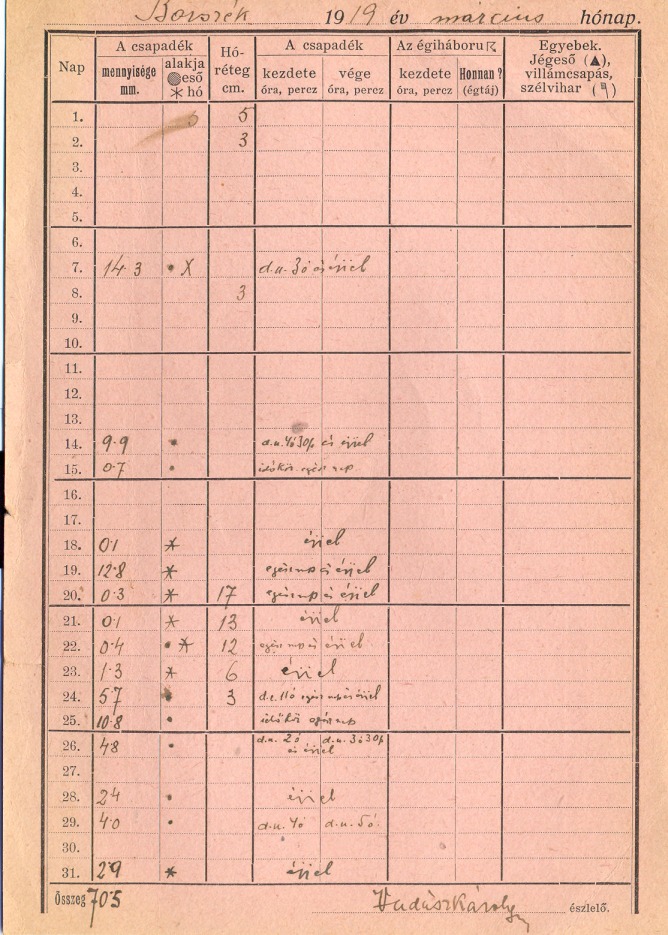 Borszék 1919 év március hónap.
Nap A csapadék Hóréteg cm. A csapadék Az égiháboru Egyebek.
mennyisége mm. alakja eső hó kezdete óra, percz vége óra, percz kezdete óra, percz Honnan? (égtáj) Jégeső (▲), villámcsapás, szélvihar
1. 5 5
2. 3
3.
4.
5.
6.
7. 14.3 • X d.u. 3ó és éjjel
8. 3
9.
10.
11.
12.
13.
14. 9.9 • d.u. 4ó30p és éjjel
15. 0.7 • időköz. egész nap
16.
17.
18. 0.1 * éjjel
19. 12.8 * egész nap és éjjel
20. 0.3 * 17 egész nap és éjjel
21. 0.1 * 13 éjjel
22. 0.4 • * 12 egész nap és éjjel
23. 1.3 * 6 éjjel
24. 5.7 3 d.e. 11ó egész nap és éjjel
25. 10.8 • időköz egész nap
26. 4.8 • d.u. 2ó és éjjel d.u. 3ó30p
27.
28. 2.4 • éjjel
29. 4.0 • d.u. 4ó d.u. 5ó
30.
31. 2.9 * éjjel
Összeg 70.5 Vadász Károly észlelő.